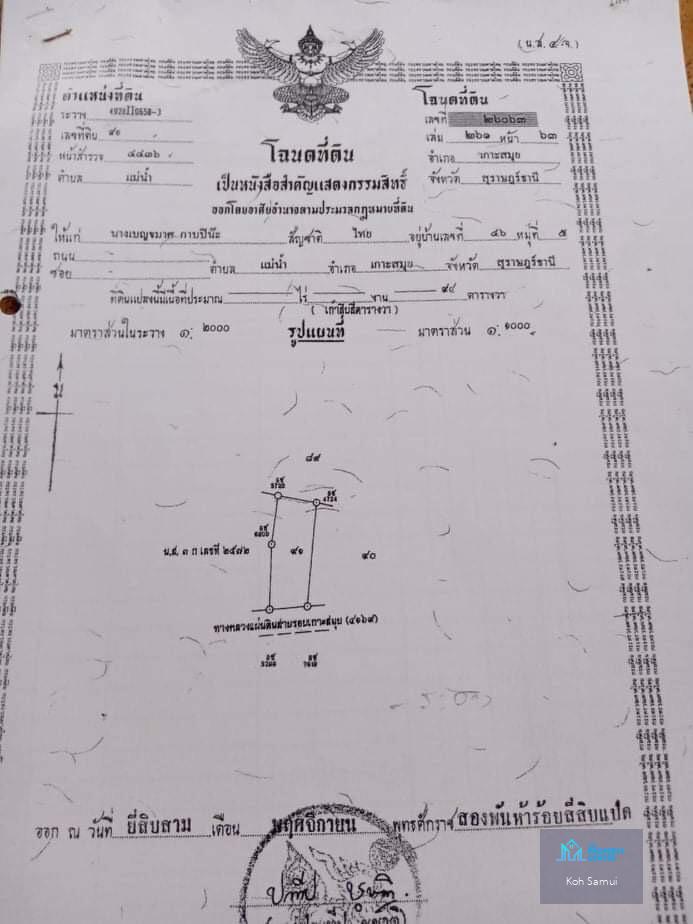 ( น.ส. ๔ จ. )
ตำแหน่งที่ดิน
ระวาง 4928II0658-3
เลขที่ดิน ๔๑
หน้าสำรวจ ๔๔๓๖
ตำบล แม่น้ำ
โฉนดที่ดิน
เลขที่ ๒๖๐๖๓
เล่ม ๒๖๑ หน้า ๖๓
อำเภอ เกาะสมุย
จังหวัด สุราษฎร์ธานี
โฉนดที่ดิน
เป็นหนังสือสำคัญแสดงกรรมสิทธิ์
ออกโดยอาศัยอำนาจตามประมวลกฎหมายที่ดิน
ให้แก่ นางเบญจมาศ กาบปิน๊ะ สัญชาติ ไทย อยู่บ้านเลขที่ ๔๖ หมู่ที่ ๕
ถนน -
ซอย - ตำบล แม่น้ำ อำเภอ เกาะสมุย จังหวัด สุราษฎร์ธานี
ที่ดินแปลงนี้มีเนื้อที่ประมาณ ไร่ งาน ๙๔ ตารางวา
( เก้าสิบสี่ตารางวา )
มาตราส่วนในระวาง ๑: ๒๐๐๐ รูปแผนที่ มาตราส่วน ๑: ๑๐๐๐
น
๘๙
๕ช
๕ช
4724
๕ช
น.ส. ๓ ก เลขที่ ๒๕๗๒ ๔๑ ๙๐
ทางหลวงแผ่นดินสายรอบเกาะสมุย (๔๑๖๙)
๕ช ๕ช
ออก ณ วันที่ ยี่สิบสาม เดือน พฤศจิกายน พุทธศักราช สองพันห้าร้อยสี่สิบแปด
Koh Samui